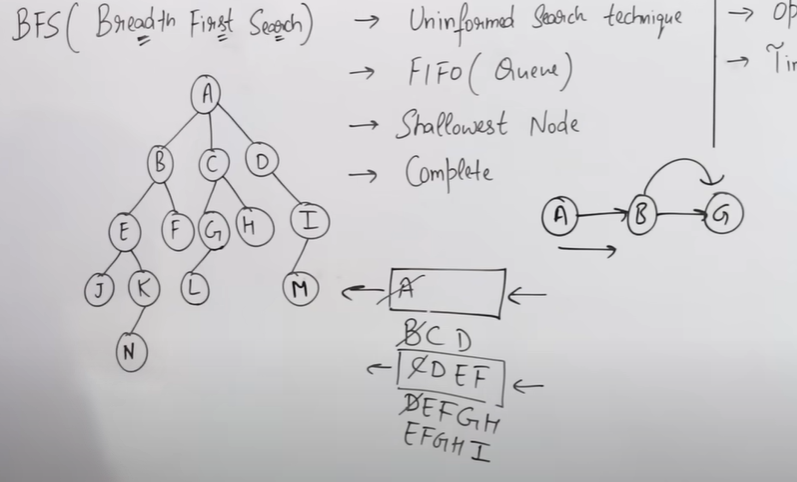 BFS( Breadth First Search)
→ Uninformed Search technique
→ FIFO( Queue)
→ Shallowest Node
→ Complete
→ Op
→ Tim
A
B C D
E F G H I
J K L M
N
A → B → G
A
B C D
C D E F
D E F G H
E F G H I